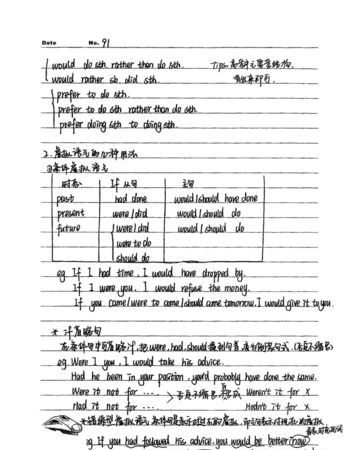 Date No. 91
would do sth. rather than do sth. Tips:
would rather sb. did sth.
prefer to do sth.
prefer to do sth rather than do sth.
prefer doing sth to doing sth.
2. 虚拟语气的几种用法
①条件虚拟语气
时态 If 从句 主句
past had done would/should have done
present were/did would/should do
future were/did would/should do
were to do
should do
eg. If I had time, I would have dropped by.
If I were you, I would refuse the money.
If you came/were to come/should come tomorrow, I would give it to you.
* if 省略句
在条件句中可省略 if, 把 were, had, should 提到句首 变为倒装句式.
eg. Were I you, I would take his advice.
Had he been in your position, you'd probably have done the same.
Were it not for .... 否定 Weren't it for X
Had it not for .... Hadn't it for X
eg If you had followed his advice, you would be better (now)